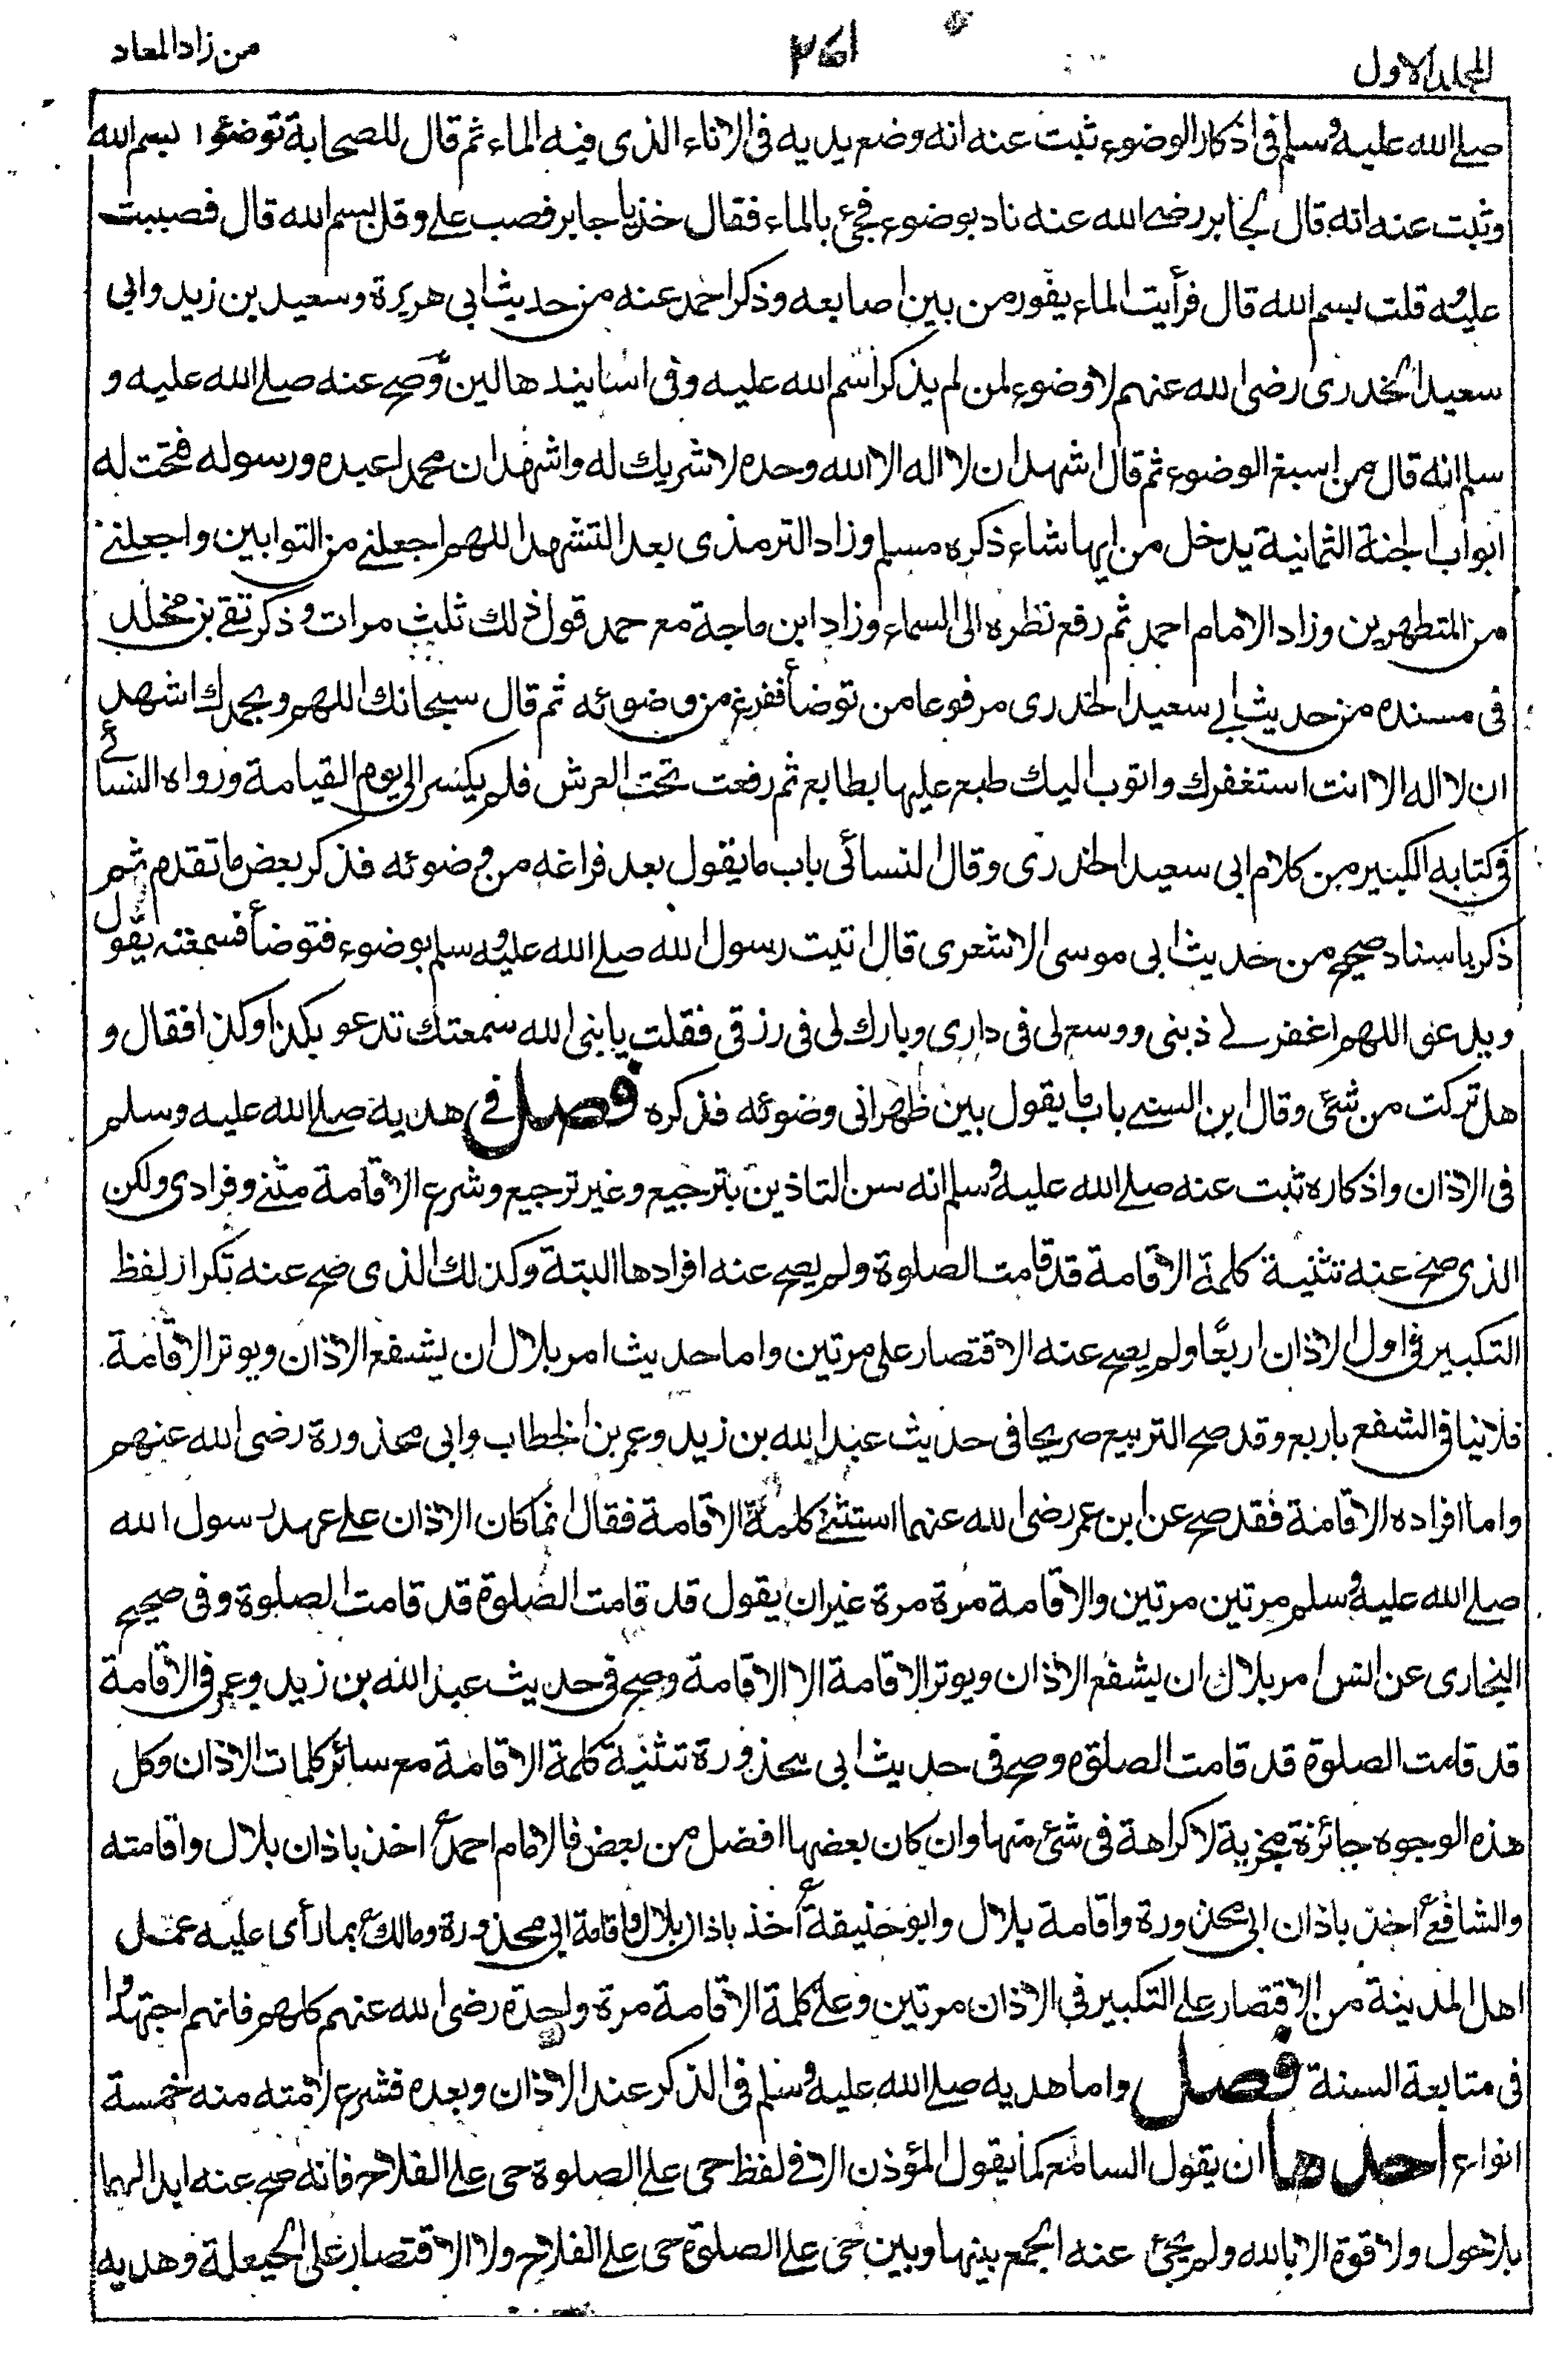 المجلد الاول
٣٤١
من زاد المعاد
صلے الله عليه وسلم فى اذكار الوضوء ثبت عنه انه وضع يديه فى الاناء الذى فيه الماء ثم قال للصحابة توضؤا بسم الله
وثبت عنه انه قال لجابر رضے الله عنه ناد بوضوء فجئ بالماء فقال خذ يا جابر فصب على وقل بسم الله قال فصببت
عليه وقلت بسم الله قال فرأيت الماء يفور من بين اصابعه وذكر احمد عنه من حديث ابى هريرة وسعيد بن زيد وابى
سعيد الخدرى رضى الله عنهم لا وضوء لمن لم يذكر اسم الله عليه وفى اسانيدها لين وصح عنه صلے الله عليه و
سلم انه قال من اسبغ الوضوء ثم قال اشهد ان لا اله الا الله وحده لا شريك له واشهد ان محمدا عبده ورسوله فتحت له
ابواب الجنة الثمانية يدخل من ايها شاء ذكره مسلم وزاد الترمذى بعد التشهد اللهم اجعلنے من التوابين واجعلنے
من المتطهرين وزاد الامام احمد ثم رفع نظره الى السماء وزاد ابن ماجة مع حمد قول ذلك ثلث مرات وذكر تقے بن مخلد
فى مسنده من حديث ابے سعيد الخدرى مرفوعا من توضأ ففرغ من وضوئه ثم قال سبحانك اللهم وبحمدك اشهد
ان لا اله الا انت استغفرك واتوب اليك طبع عليها بطابع ثم رفعت تحت العرش فلم يكسر الى يوم القيامة ورواه النسائے
فى كتابه الكبير من كلام ابى سعيد الخدرى وقال النسائى باب ما يقول بعد فراغه من وضوئه فذكر بعض ما تقدم ثم
ذكر باسناد صحيح من حديث ابى موسى الاشعرى قال اتيت رسول الله صلے الله عليه وسلم بوضوء فتوضأ فسمعته يقول
ويدعو اللهم اغفر لے ذنبى ووسع لى فى دارى وبارك لى فى رزقى فقلت يا نبى الله سمعتك تدعو بكذا وكذا فقال و
هل تركت من شئ وقال ابن السنے باب ما يقول بين ظهرانى وضوئه فذكره فصل فى هديه صلے الله عليه وسلم
فى الاذان واذكاره ثبت عنه صلے الله عليه وسلم انه سن التاذين بترجيع وغير ترجيع وشرع الاقامة مثنے وفرادى ولكن
الذى صح عنه تثنية كلمة الاقامة قد قامت الصلوة ولم يصح عنه افرادها البتة وكذلك الذى صح عنه تكرار لفظ
التكبير فى اول الاذان اربعًا ولم يصح عنه الاقتصار على مرتين واما حديث امر بلال ان يشفع الاذان ويوتر الاقامة
فلا ينافى الشفع باربع وقد صح التربيع صريحا فى حديث عبد الله بن زيد وعمر بن الخطاب وابى محذورة رضى الله عنهم
واما افراده الاقامة فقد صح عن ابن عمر رضى الله عنهما استثنے كلمة الاقامة فقال انما كان الاذان على عهد رسول الله
صلے الله عليه وسلم مرتين مرتين والاقامة مرة مرة غير ان يقول قد قامت الصلوة قد قامت الصلوة وفى صحيح
البخارى عن انس امر بلال ان يشفع الاذان ويوتر الاقامة الا الاقامة وصح فى حديث عبد الله بن زيد وعمر فى الاقامة
قد قامت الصلوة قد قامت الصلوة وصح فى حديث ابى محذورة تثنية كلمة الاقامة مع سائر كلمات الاذان وكل
هذه الوجوه جائزة مجزية لا كراهة فى شئ منها وان كان بعضها افضل من بعض فالامام احمد اخذ باذان بلال واقامته
والشافعى اخذ باذان ابى محذورة واقامة بلال وابو حنيفة اخذ باذان بلال واقامة ابى محذورة ومالك بما رأى عليه عمل
اهل المدينة من الاقتصار على التكبير فى الاذان مرتين وعلى كلمة الاقامة مرة واحدة رضى الله عنهم كلهم فانهم اجتهدوا
فى متابعة السنة فصل واما هديه صلے الله عليه وسلم فى الذكر عند الاذان وبعده فشرع لامته منه خمسة
انواع احدها ان يقول السامع كما يقول المؤذن الا فے لفظ حى على الصلوة حى على الفلاح فانه صح عنه ابدالهما
بلا حول ولا قوة الا بالله ولم يجئ عنه الجمع بينها وبين حى على الصلوة حى على الفلاح ولا الاقتصار على الحيعلة وهديه